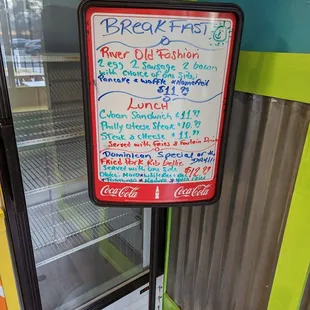 BreakFast
River Old Fashion
2 egg 2 Sausage 2 bacon
with choice of one Side.
Pancake & waffle
$11.99
Lunch
Cuban Sandwich $11.99
Philly cheese Steak $10.99
Steak & cheese $11.99
Served with Fries & Fountain Drink
Dominican Special of the
Fried Pork Rib
Served with one Side
$12.99
Coca-Cola Coca-Cola